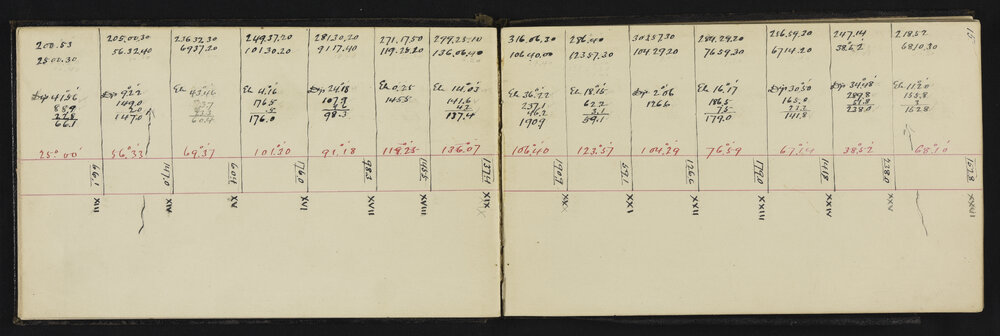 200.53
25.00.30
Dep 41.56
88.9
22.8
66.1
25° 00'
66.1
XIII
205.00.30
56.32.40
Dep 9°22'
149.0
2.0
147.0
56.33
147.0
XIV
236.32.30
69.37.20
El 43°46'
60.4
69.37
60.4
XV
249.37.20
101.30.20
El 4.°16'
176.5
.5
176.0
101.20
176.0
XVI
281.30.20
91.17.40
Dep 24°18'
107.9
9.6
98.3
91.18
98.3
XVII
271.17.50
119.25.20
El 0.25
145.5
119.25
145.5
XVIII
299.25.10
136.06.40
El 14.°03'
141.6
4.2
137.4
136.07
137.4
XIX
316.06.30
106.40.00
El 36.°22'
237.1
46.2
190.9
106.40
190.9
XX
286.40
123.57.30
El 18.°15'
62.2
3.1
59.1
123.57
59.1
XXI
303.57.30
104.29.20
Dep 2°08
126.6
104.29
126.6
XXII
284.29.20
76.59.30
El 16.°17'
186.5
7.5
179.0
76.59
179.0
XXIII
256.59.30
67.14.20
Dep 30°50'
165.0
23.2
141.8
67.14
141.8
XXIV
247.14
38.52
Dep 34°48'
289.8
51.8
238.0
38.52
238.0
XXV
218.52
68.10.30
El 11°20'
155.8
3
152.8
68.10
152.8
XXVI
15